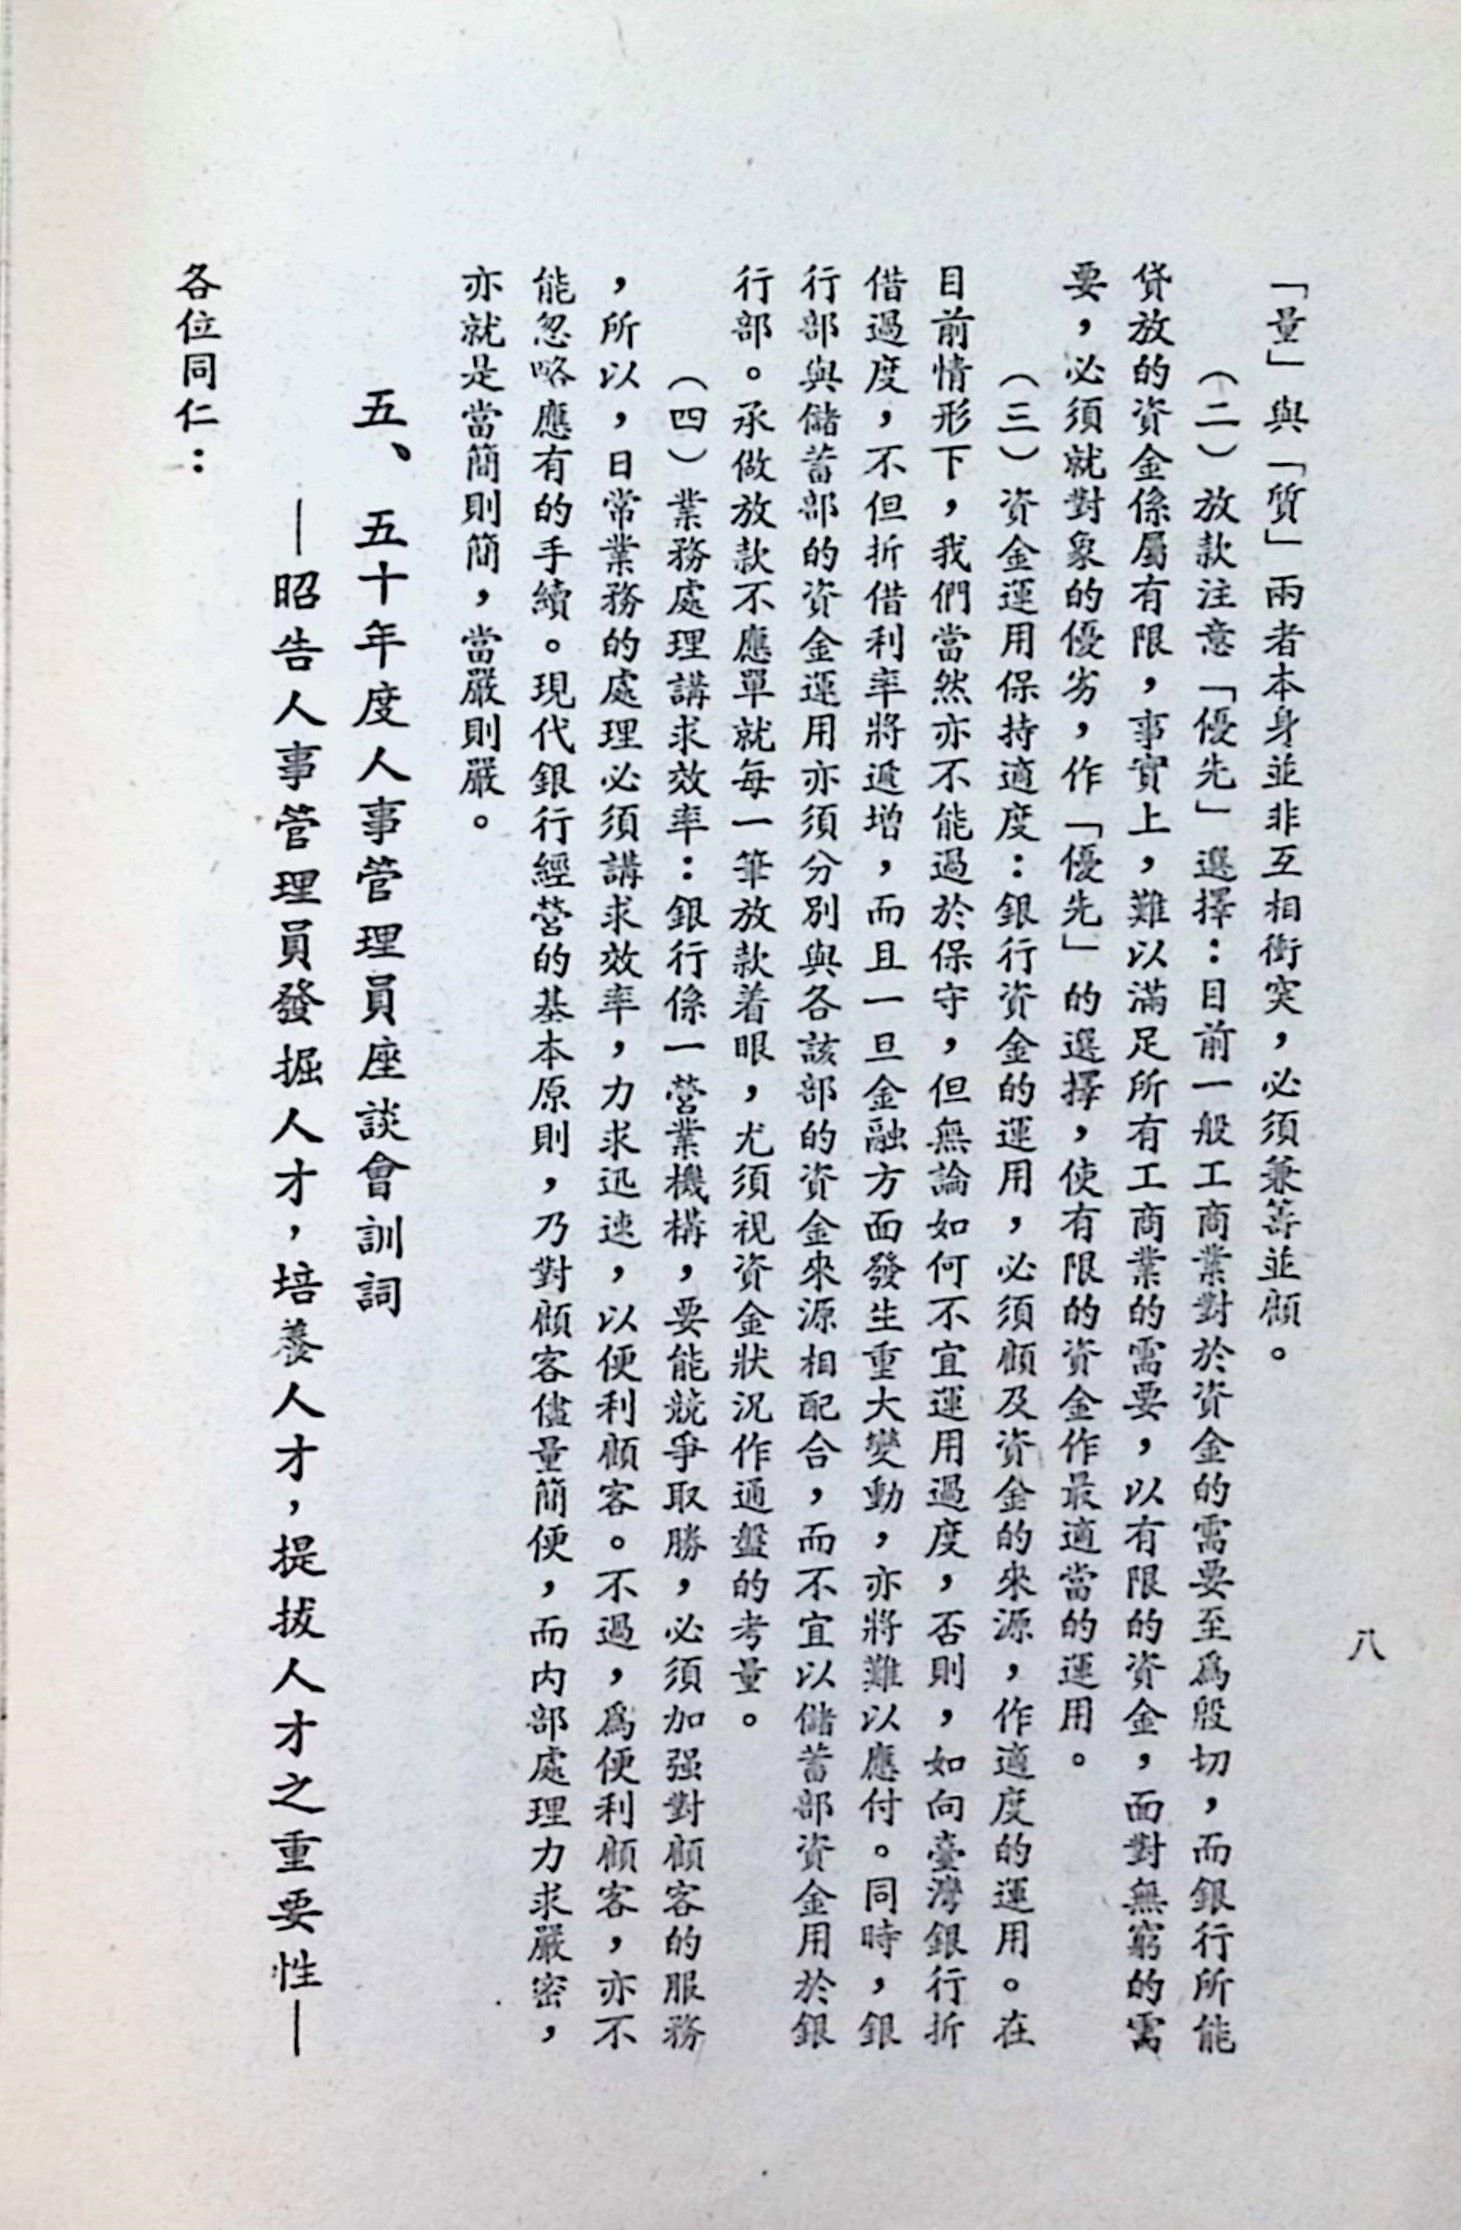 八
「量」與「質」兩者本身並非互相衝突，必須兼籌並顧。
（二）放款注意「優先」選擇：目前一般工商業對於資金的需要至爲殷切，而銀行所能
貸放的資金係屬有限，事實上，難以滿足所有工商業的需要，以有限的資金，面對無窮的需
要，必須就對象的優劣，作「優先」的選擇，使有限的資金作最適當的運用。
（三）資金運用保持適度：銀行資金的運用，必須顧及資金的來源，作適度的運用。在
目前情形下，我們當然亦不能過於保守，但無論如何不宜運用過度，否則，如向臺灣銀行折
借過度，不但折借利率將遞增，而且一旦金融方面發生重大變動，亦將難以應付。同時，銀
行部與儲蓄部的資金運用亦須分別與各該部的資金來源相配合，而不宜以儲蓄部資金用於銀
行部。承做放款不應單就每一筆放款着眼，尤須視資金狀況作通盤的考量。
（四）業務處理講求效率：銀行係一營業機構，要能競爭取勝，必須加强對顧客的服務
，所以，日常業務的處理必須講求效率，力求迅速，以便利顧客。不過，爲便利顧客，亦不
能忽略應有的手續。現代銀行經營的基本原則，乃對顧客儘量簡便，而內部處理力求嚴密，
亦就是當簡則簡，當嚴則嚴。
五、五十年度人事管理員座談會訓詞
—昭告人事管理員發掘人才，培養人才，提拔人才之重要性—
各位同仁：